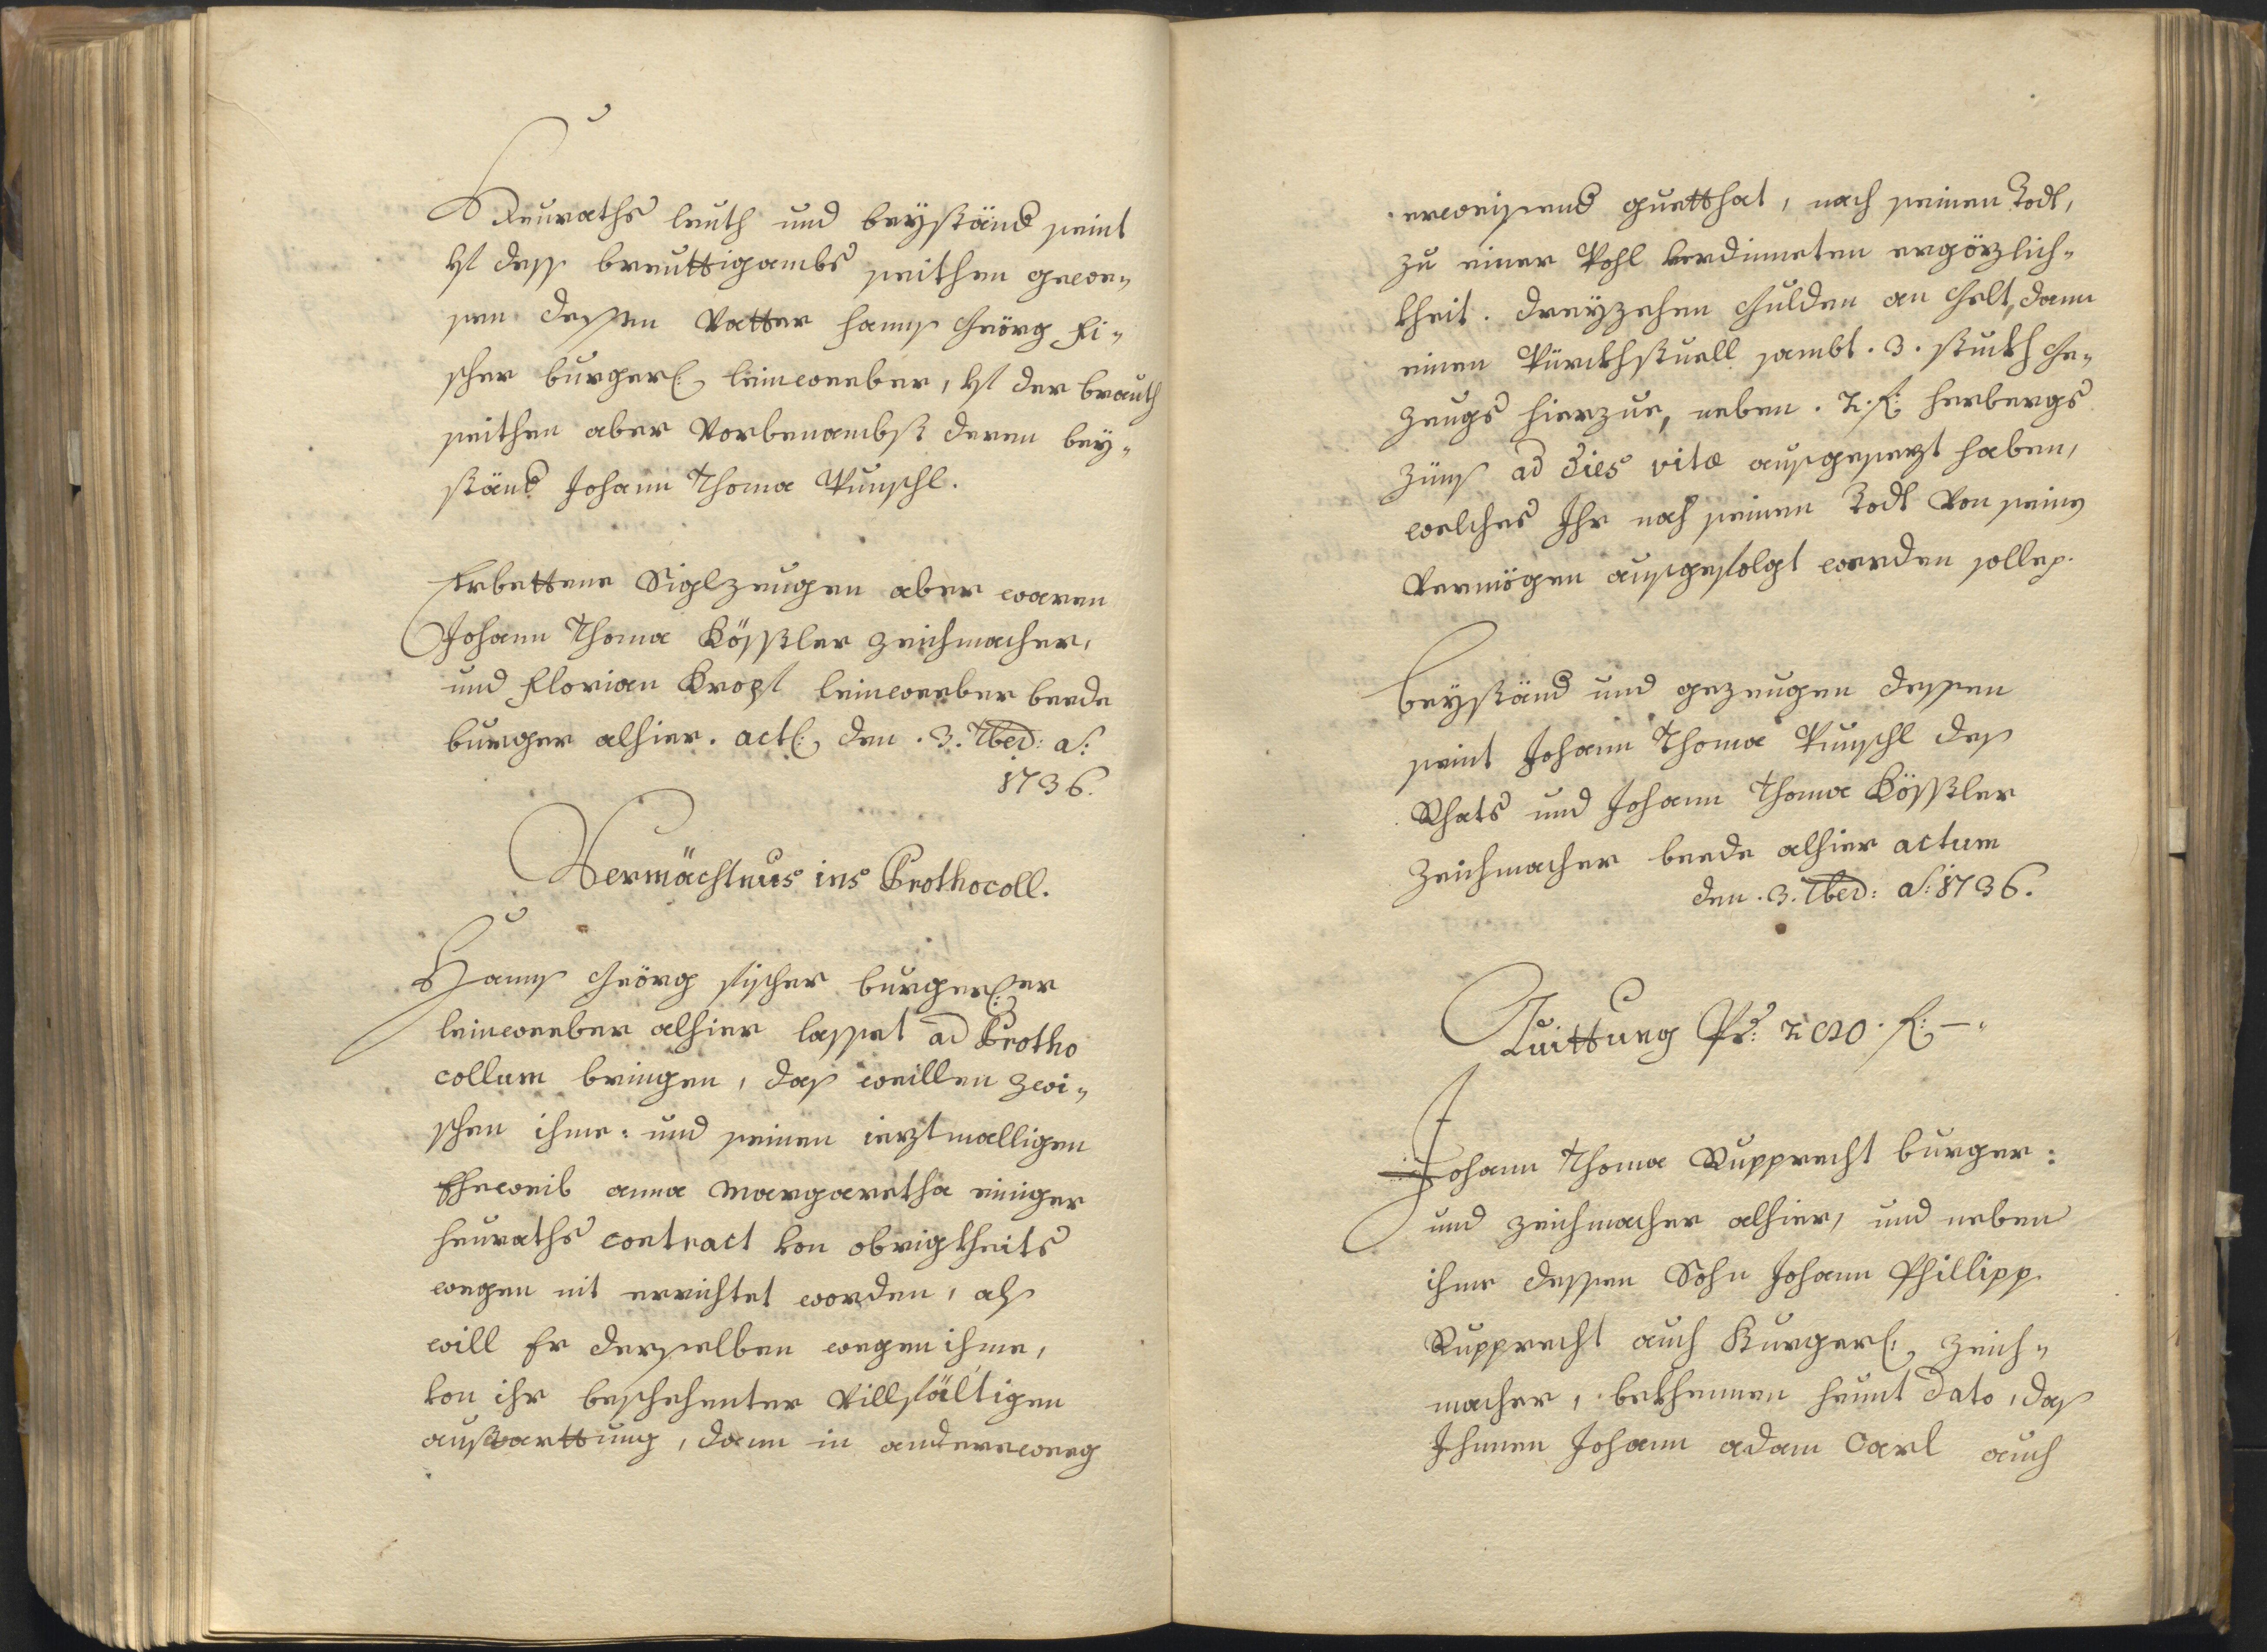 Heuraths leuth und beyständ seint
Uf dess breuttigambs seithen gewe„
sen dessen Vatter Hanns Geörg Fi„
scher burgerl: leinweeber, Uf der brauth
seithen aber Vorbenambst deren bey„
ständ Johann Thoma Punschl.
Erbettene Siglzeugen aber waren
Johann Thoma Kössler zeichmacher,
und Florian Kropf leinweeber beede
burger alhier. actl: den .3. 7bed: a̅:
1736.
Vermächtnus ins Prothocoll.
Hanns Geörg fischer burgerl:er
leinweeber alhier lasset ad Protho
collum bringen, das weillen zwi„
schen ihme: und seinen ieztmalligen
Eheweib anna Margaretha einiger
heuraths contract von obrigkheits
wegen nit errichtet worden, als
will Er derselben wegen ihme,
von ihr beschehenter Villfältigen
auswarttung, dann in anderweeg
erweisend guetthat, nach seinen Todt,
zu einer Wohl verdinneten ergözlich„
kheit. dreyzehen Gulden an Gelt, dann
einen Würckhstuell sambt .3. stuckh Ge„
zeugs hierzue, neben .2. f: herbergs
Züns ad dies vitæ ausgesezt haben,
welches Ihr nach seinen Todt Von seinen
Vermögen ausgefolgt werden solle p.
Beyständ und gezeugen dessen
seint Johann Thoma Punschl des
Rhats und Johann Thoma Kössler
Zeichmacher beede alhier actum
den .3. 7bed: a̅: 1736.
Quittung Pr:  f: —„
Johann Thoma Rupprecht burger:
und zeichmacher alhier, und neben
ihme dessen Sohn Johann Phillipp
Rupprecht auch Burgerl: zeich„
macher, bekhennen heunt dato, das
Ihnnen Johann adam Carl auch